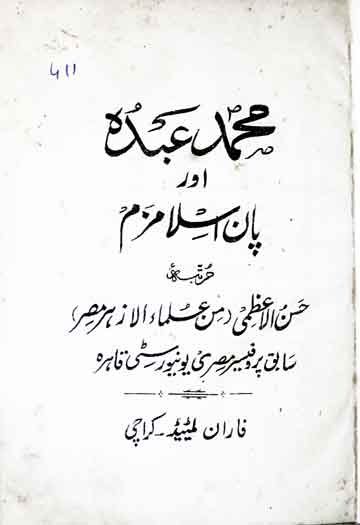 ۵۱۱
محمد عبدہ
اور
پان اسلامزم
مرتبہ
حسن الاعظمی (من علماء الازہر مصر)
سابق پروفیسر مصری یونیورسٹی قاہرہ
فاران لمیٹڈ - کراچی